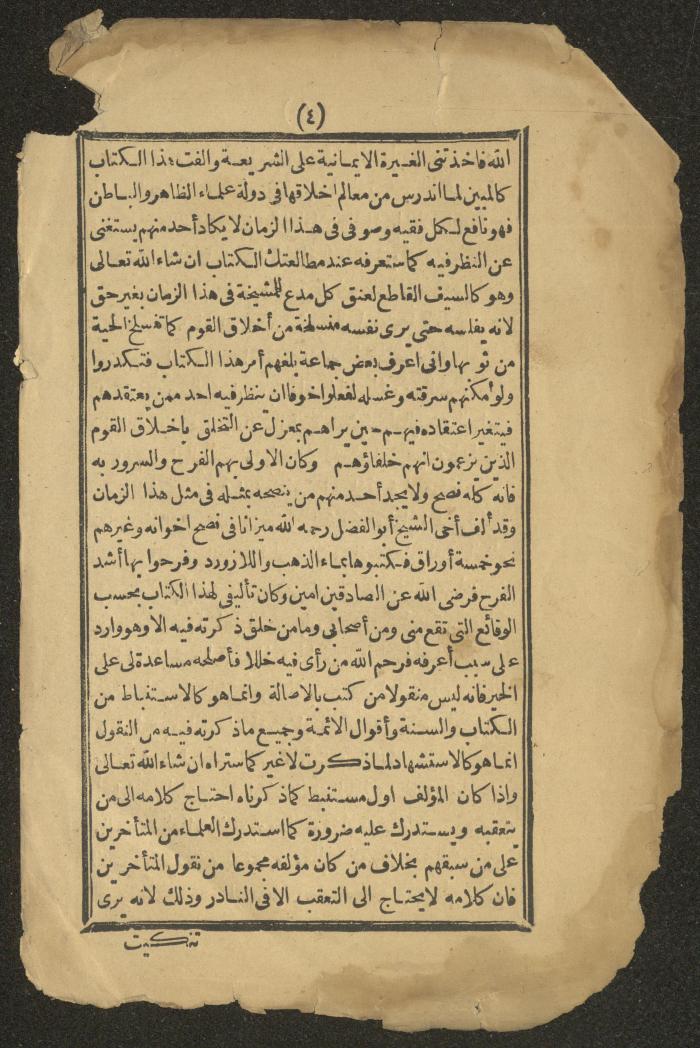 (٤)
الله فاخذتنى الغيرة الايمانية على الشريعة والفت هذا الكتاب
كالمبين لما اندرس من معالم اخلاقها فى دولة علماء الظاهر والباطن
فهو نافع لكل فقيه وصوفى فى هذا الزمان لا يكاد أحد منهم يستغنى
عن النظر فيه كما ستعرفه عند مطالعتك الكتاب ان شاء الله تعالى
وهو كالسيف القاطع لعنق كل مدع للمشيخة فى هذا الزمان بغير حق
لانه يفلسه حتى يرى نفسه منسلخة من أخلاق القوم كما تنسلخ الحية
من ثوبها وانى اعرف بعض جماعة بلغهم أمر هذا الكتاب فتكدروا
ولو أمكنهم سرقته وغسله لفعلوا خوفا ان ينظر فيه احد ممن يعتقدهم
فيتغير اعتقاده فيهم حين يراهم بمعزل عن التخلق باخلاق القوم
الذين يزعمون انهم خلفاؤهم وكان الاولى بهم الفرح والسرور به
فانه كله نصح ولا يجد أحد منهم من ينصحه بمثله فى مثل هذا الزمان
وقد ألف أخى الشيخ أبو الفضل رحمه الله ميزانا فى نصح اخوانه وغيرهم
نحو خمسة أوراق فكتبوها بماء الذهب واللازورد وفرحوا بها أشد
الفرح فرضى الله عن الصادقين امين وكان تأليفى لهذا الكتاب بحسب
الوقائع التى تقع منى ومن أصحابى وما من خلق ذكرته فيه الا وهو وارد
على سبب أعرفه فرحم الله من رأى فيه خللا فأصلحه مساعدة لى على
الخير فانه ليس منقولا من كتب بالاصالة وانما هو كالاستنباط من
الكتاب والسنة وأقوال الائمة وجميع ما ذكرته فيه من النقول
انما هو كالاستشهاد لما ذكرت لا غير كما ستراه ان شاء الله تعالى
واذا كان المؤلف اول مستنبط كما ذكرناه احتاج كلامه الى من
يتعقبه ويستدرك عليه ضرورة كما استدرك العلماء من المتأخرين
على من سبقهم بخلاف من كان مؤلفه مجموعا من نقول المتأخرين
فان كلامه لا يحتاج الى التعقب الا فى النادر وذلك لانه يرى
تنكيت